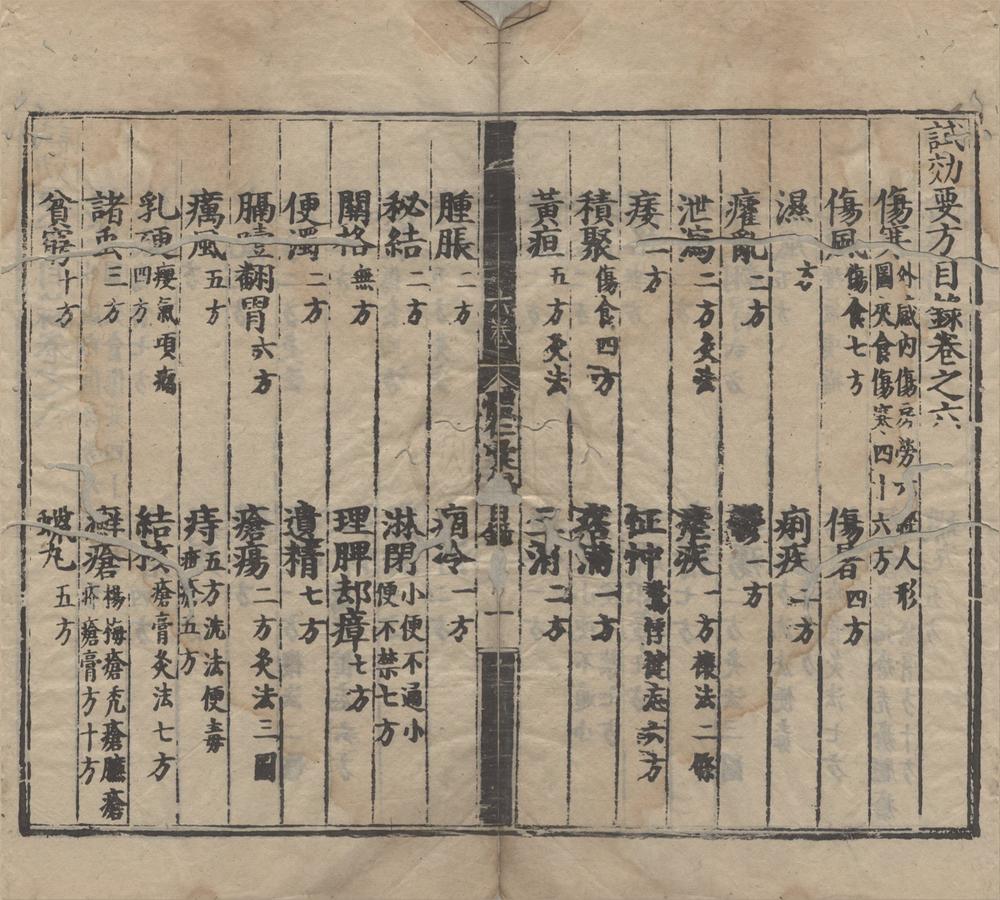 試効要方目錄卷之六
傷寒 外感內傷房勞 人形圖夾食傷寒 四十六方
傷風 傷食七方 傷暑 四方
濕 六方 痢疾 二方
癨亂 二方 鬱 一方
泄瀉 二方灸法 瘧疾 一方禳法二條
痿 一方 怔忡 驚悸健忘六方
積聚 傷食四方 痞滿 一方
黃疸 五方灸法 三消 二方
六卷 懷仁 目錄 一
腫脹 二方 痼冷 一方
秘結 二方 淋閉 小便不通小便不禁七方
關格 無方 理脾却瘴 七方
便濁 二方 遺精 七方
膈噎翻胃 六方 瘡瘍 二方灸法三圖
癘風 五方 痔 五方洗法便毒疳瘡五方
乳硬 癭氣項癧四方 結核 瘡膏灸法七方
諸虫 三方 癬瘡 楊梅瘡禿瘡臁瘡疥瘡膏方十方
貧窮 十方 丸 五方